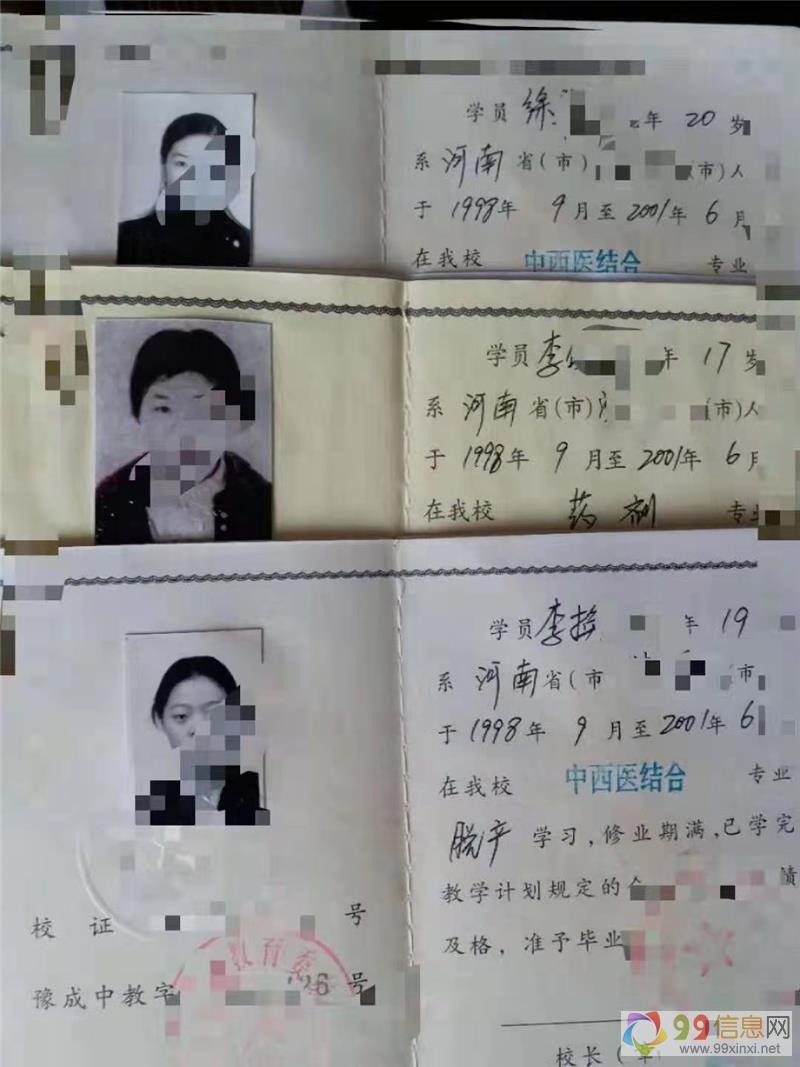 学员 徐 年 20 岁
系 河南 省(市) (市)人
于 1998年 9 月至 2001年 6 月
在我校 中西医结合 专业
学员 李 年 17 岁
系 河南 省(市) (市)人
于 1998年 9 月至 2001年 6 月
在我校 药剂 专业
学员 李 年 19
系 河南 省(市 市)
于 1998年 9 月至 2001年 6
在我校 中西医结合 专业
脱产 学习，修业期满，已学完
教学计划规定的 绩
及格，准予毕业
校 证 号
豫成中教字 26 号
教育委
校长(
99信息网
www.99xinxi.net